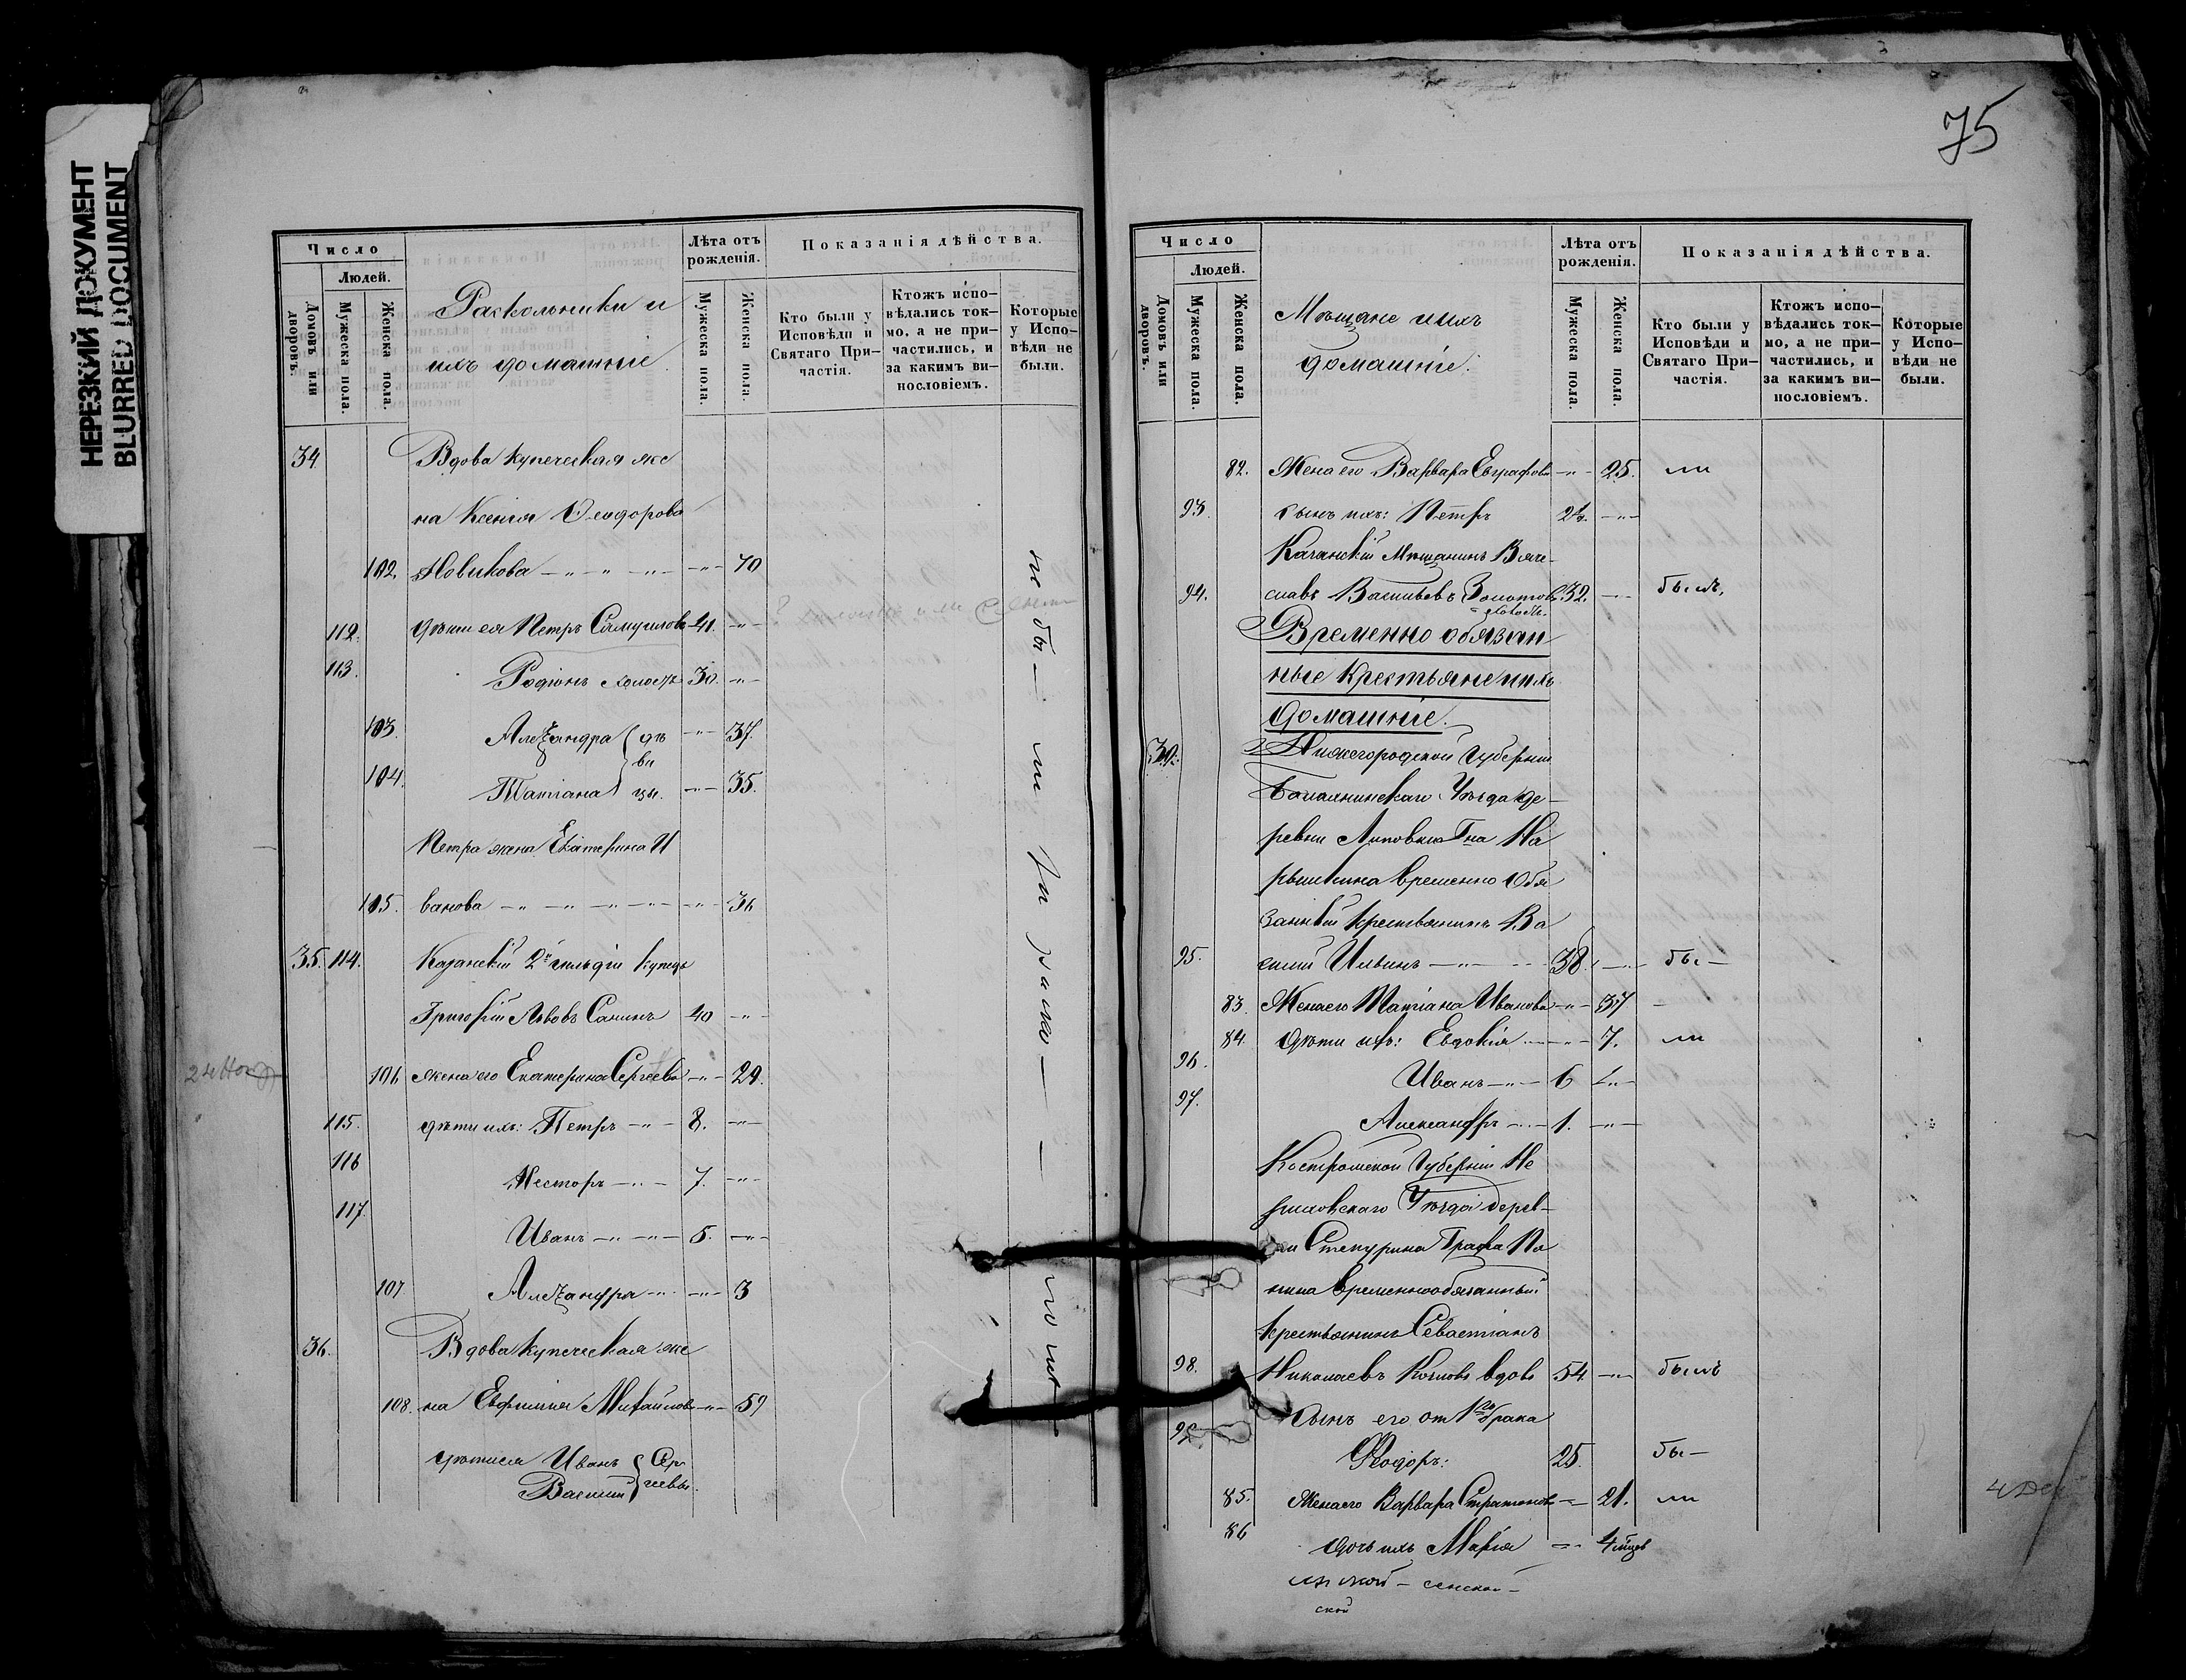 НЕРЕЗКИЙ ДОКУМЕНТ
BLURRED DOCUMENT
Число
Людей.
Домовъ или дворовъ.
Мужеска пола.
Женска пола.
Раскольники и
ихъ домашніе.
Лѣта отъ рожденія.
Мужеска пола.
Женска пола.
Показанія дѣйства.
Кто были у Исповѣди и Святаго При-частія.
Ктожъ испо-вѣдались ток-мо, а не при-частились, и за какимъ ви-нословіемъ.
Которые у Испо-вѣди не были.
34. Вдова купеческая же
на Ксенія Ѳеодорова
102. Новикова — „ — „ — „ — 70
112. дѣти ея Петръ Самуилов 41. — „ —
113. Родіонъ холостъ 30. — „ —
103. Александра { дѣ — „ — 37.
ви
104. Татіана } цы. — „ — 35.
Петра жена Екатерина И
105. ванова — „ — „ — „ — 36
35. 114. Казанскій 2й гильдіи купецъ
Григорій Львовъ Санинъ 40 — „ —
106 жена его Екатерина Сергеева — „ — 29.
115. дѣти ихъ: Петръ — „ — 8. — „ —
116 Несторъ — „ — 7. — „ —
117. Иванъ — „ — „ — 5. — „ —
107 Александра — „ — „ — 3
36. Вдова купеческая же
108. на Евфимія Михайлова — „ — 59
дѣти ея Иванъ { Сер
Василій { геевы.
не бы — ли
75
Число
Людей.
Домовъ или дворовъ.
Мужеска пола.
Женска пола.
Мѣщане и ихъ
домашніе.
Лѣта отъ рожденія.
Мужеска пола.
Женска пола.
Показанія дѣйства.
Кто были у Исповѣди и Святаго При-частія.
Ктожъ испо-вѣдались ток-мо, а не при-частились, и за какимъ ви-нословіемъ.
Которые у Испо-вѣди не были.
82. Жена его Варвара Евграфова — „ — 25. ли
93. сынъ ихъ: Петръ — „ —
Казанскій Мѣщанинъ Вяче-
94. славъ Васильевъ 32. — „ — былъ,
Временно обязан
ные крестьяне и ихъ
домашніе.
30. Нижегородской Губерніи
Балахнинскаго Уѣзда де-
ревни Липовки Гна На
рышкина временно Обя
занный крестьянинъ Ва
95. силій Ильинъ — „ — 38. — „ — бы —
83. Жена его Татіана Иванова — „ — 37 —
84. дѣти ихъ: Евдокія — „ — 7. ли
96. Иванъ — „ — 6 — „ —
97. Александръ — „ — 1. — „ —
Костромской Губерніи Не
рехтовскаго Уѣзда дерев-
ни Стенурина Графа Па
нина временнообязанный
крестьянинъ Севастіанъ
98. Николаевъ вдовъ 54 — „ — былъ
99. Сынъ его от 1го брака
Ѳеодоръ: 25. бы —
85. Жена его Варвара — „ — 21. ли
86 дочь ихъ Марія — „ — 4 мѣцев